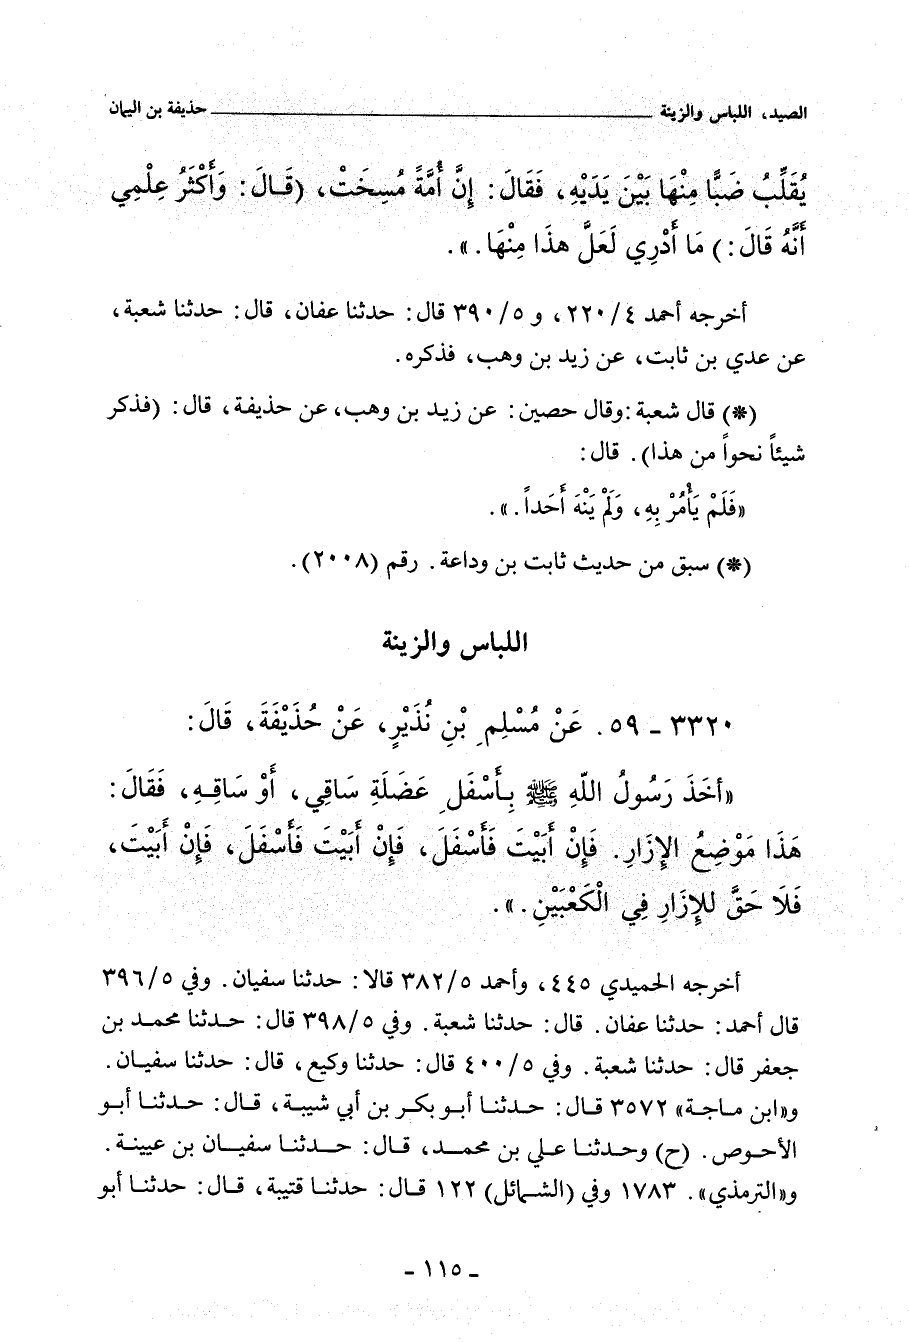 الصيد، اللباس والزينة ــــــــــــــــــــ حذيفة بن اليمان
يُقَلِّبُ ضَبًّا مِنْهَا بَيْنَ يَدَيْهِ، فَقَالَ: إِنَّ أُمَّةً مُسِخَتْ، (قَالَ: وَأَكْثَرُ عِلْمِي
أَنَّهُ قَالَ:) مَا أَدْرِي لَعَلَّ هذَا مِنْهَا.».
أخرجه أحمد ٢٢٠/٤، و ٣٩٠/٥ قال: حدثنا عفان، قال: حدثنا شعبة،
عن عدي بن ثابت، عن زيد بن وهب، فذكره.
(*) قال شعبة: وقال حصين: عن زيد بن وهب، عن حذيفة، قال: (فذكر
شيئاً نحواً من هذا). قال:
«فَلَمْ يَأْمُرْ بِهِ، وَلَمْ يَنْهَ أَحَداً.».
(*) سبق من حديث ثابت بن وداعة. رقم (٢٠٠٨).
اللباس والزينة
٣٣٢٠ - ٥٩. عَنْ مُسْلِمِ بْنِ نُذَيْرٍ، عَنْ حُذَيْفَةَ، قَالَ:
«أَخَذَ رَسُولُ اللّهِ ﷺ بِأَسْفَلِ عَضَلَةِ سَاقِي، أَوْ سَاقِهِ، فَقَالَ:
هَذَا مَوْضِعُ الإِزَارِ. فَإِنْ أَبَيْتَ فَأَسْفَلَ، فَإِنْ أَبَيْتَ فَأَسْفَلَ، فَإِنْ أَبَيْتَ،
فَلَا حَقَّ للإِزَارِ فِي الْكَعْبَيْنِ.».
أخرجه الحميدي ٤٤٥، وأحمد ٣٨٢/٥ قالا: حدثنا سفيان. وفي ٣٩٦/٥
قال أحمد: حدثنا عفان. قال: حدثنا شعبة. وفي ٣٩٨/٥ قال: حدثنا محمد بن
جعفر قال: حدثنا شعبة. وفي ٤٠٠/٥ قال: حدثنا وكيع، قال: حدثنا سفيان.
و«ابن ماجة» ٣٥٧٢ قال: حدثنا أبو بكر بن أبي شيبة، قال: حدثنا أبو
الأحوص. (ح) وحدثنا علي بن محمد، قال: حدثنا سفيان بن عيينة.
و«الترمذي». ١٧٨٣ وفي (الشمائل) ١٢٢ قال: حدثنا قتيبة، قال: حدثنا أبو
- ١١٥ -